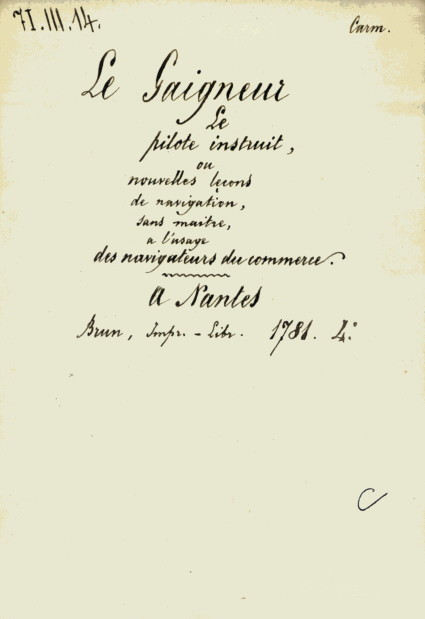 71.III.14.
Carm.
Le Gaigneur
Le
pilote instruit,
ou
nouvelles leçons
de navigation,
sans maitre,
a l'usage
des navigateurs du commerce.
A Nantes
Brun, Impr. - Libr. 1781. 4°
C